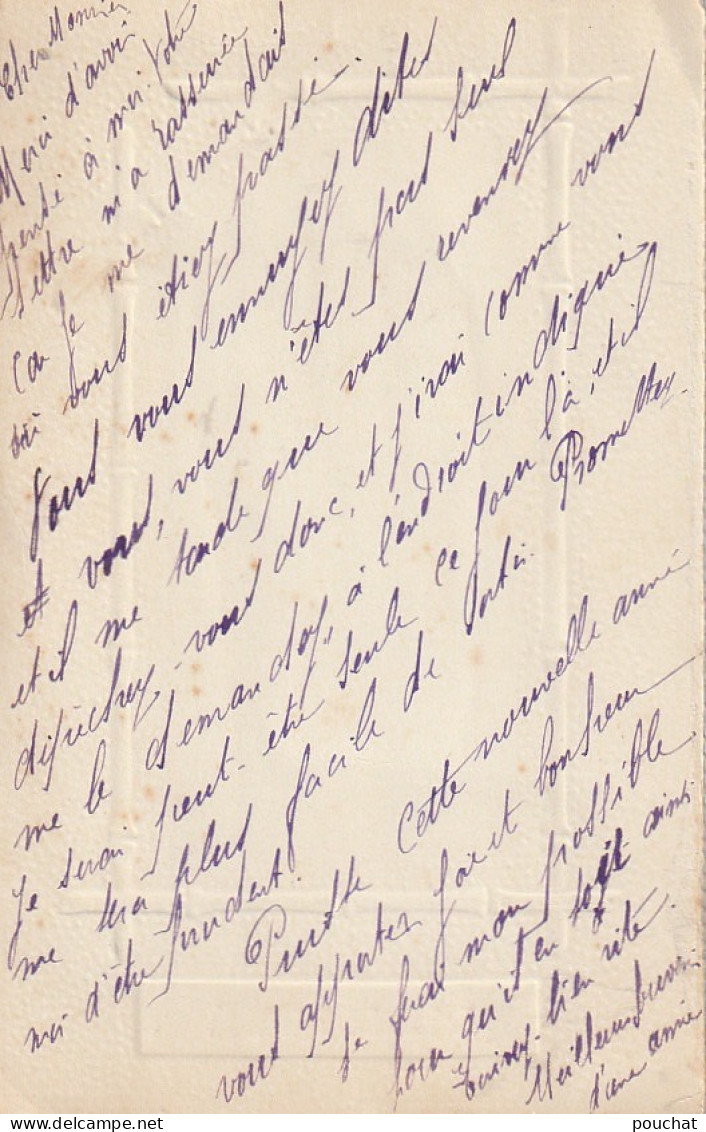 Cher Monsieur
Merci d'avoir
pensé à moi. Votre
lettre m'a rassurée
car je me demandais
où vous étiez passé.
Vous vous ennuyez dites
et vous, vous n'êtes pas seul
et il me tarde que vous reveniez
dépêchez-vous donc, et j'irai comme vous
me le demandez, à l'endroit indiqué
Je serai peut-être seule ce jour là, et il
me sera plus facile de sortir. Promettez
moi d'être prudent.
Puisse cette nouvelle année
vous apporter joie et bonheur
Je ferai mon possible
pour qu'il en soit ainsi
bien vite.
Meilleurs souvenirs
d'une amie
pouchat